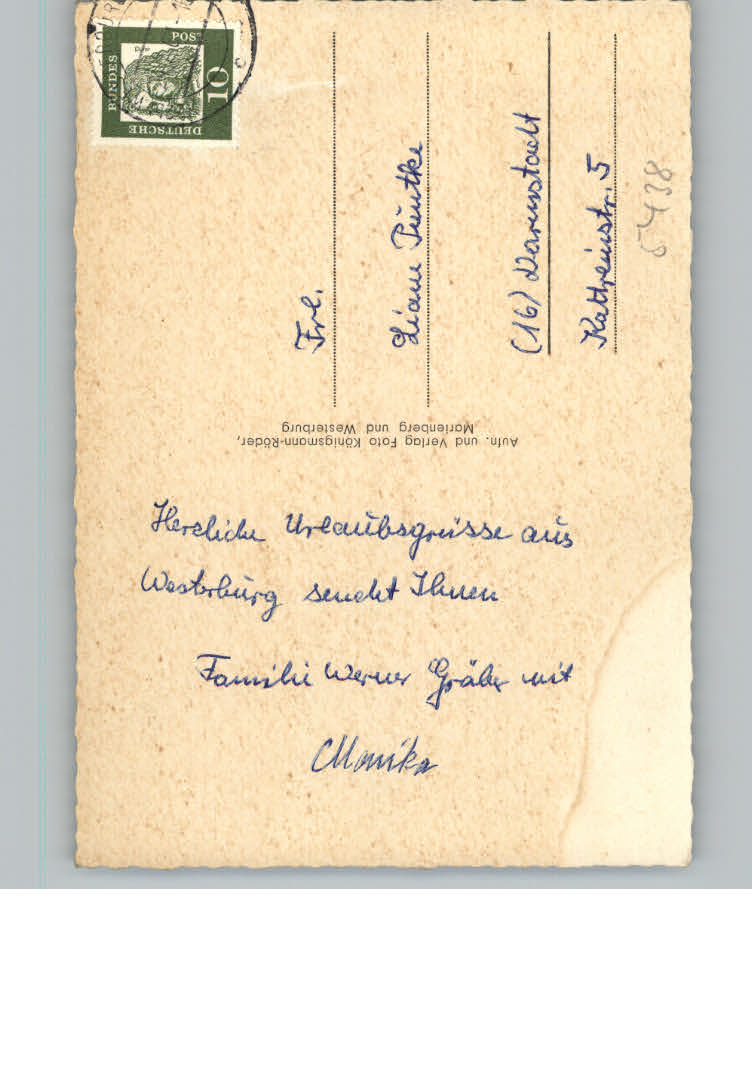 DEUTSCHE
BUNDES
POST
10
Frl.
Liane Püntke
(16) Darmstadt
Kattreinstr. 5
5438
Aufn. und Verlag Foto Königsmann-Röder,
Marienberg und Westerburg
Herzliche Urlaubsgrüsse aus
Westerburg sendet Ihnen
Familie Werner Gräber mit
Monika